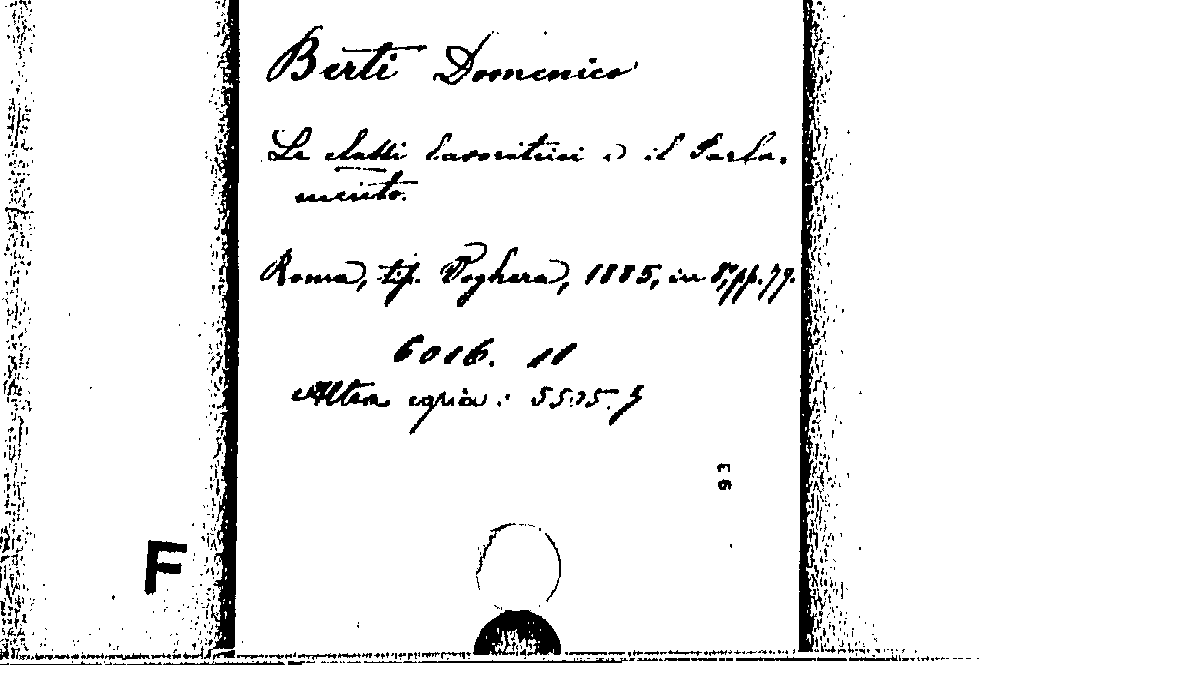 Berti Domenico
Le classi lavoratrici e il Parla-
mento.
Roma, tip. Voghera, 1885, in 8°, pp. 77.
6016. 11
Altra copia: 5525. 5
63
F